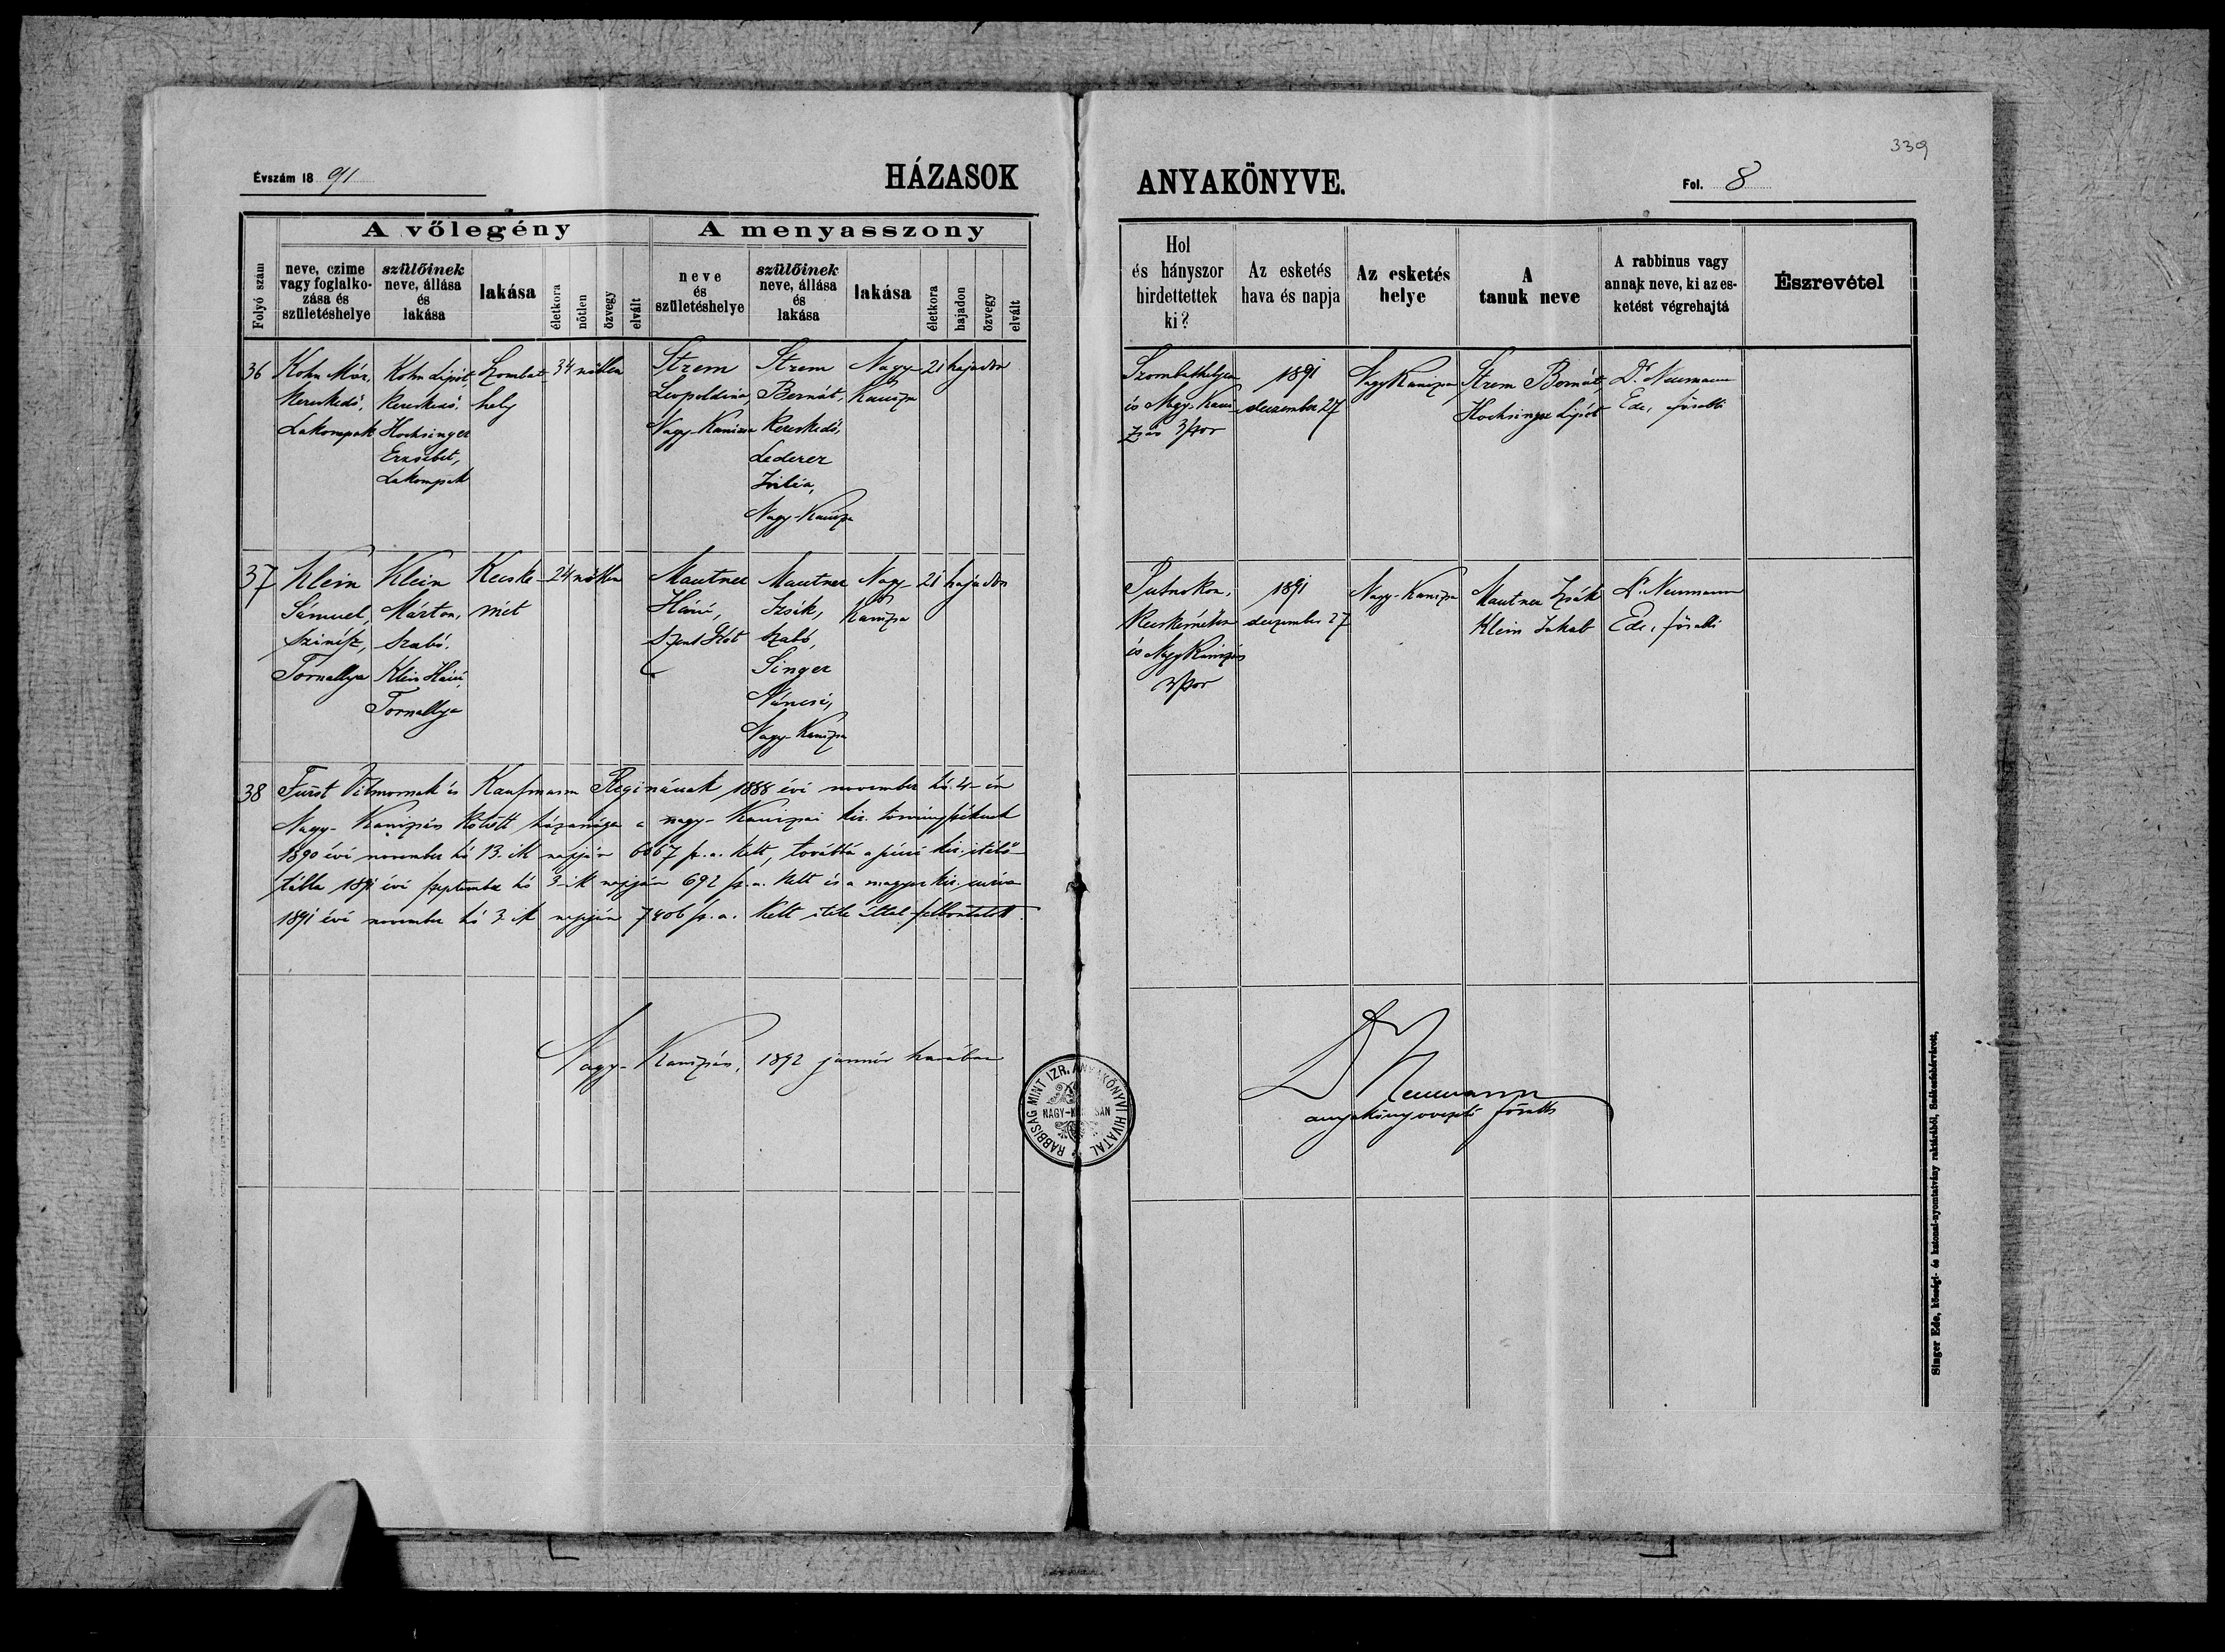 339
Évszám 18 91
HÁZASOK
ANYAKÖNYVE.
Fol. 8
A vőlegény
A menyasszony
Folyó szám
neve, czime
vagy foglalko-
zása és
születéshelye
szülőinek
neve, állása
és
lakása
lakása
életkora
nőtlen
özvegy
elvált
neve
és
születéshelye
szülőinek
neve, állása
és
lakása
lakása
életkora
hajadon
özvegy
elvált
Hol
és hányszor
hirdettettek
ki?
Az esketés
hava és napja
Az esketés
helye
A
tanuk neve
A rabbinus vagy
annak neve, ki az es-
ketést végrehajtá
Észrevétel
36
Kohn Mór,
Kereskedő,
Lakompak
Kohn Lipót
Kereskedő,
Hochsinger
Erzsébet,
Lakompak
Szombat-
hely
34
nőtlen
Strem
Leopoldina,
Nagy-Kanizsa
Strem
Bernát,
Kereskedő,
Lederer
Julia,
Nagy-Kanizsa
Nagy-
Kanizsa
21
hajadon
Szombathelyen
és Nagy-Kani-
zsán 3szor
1891
deczember 27
Nagy Kanizsa
Strem Bernát
Hochsinger Lipót
Dr. Neumann
Ede, főrabbi
37
Klein
Sámuel,
Szinész,
Tornallya
Klein
Márton,
Szabó,
Klein Háni,
Tornallya
Kecske-
mét
24
nőtlen
Mautner
Háni,
Szent
Mautner
Izsák,
Szabó,
Singer
Náncsi,
Nagy-Kanizsa
Nagy-
Kanizsa
21
hajadon
Putnokon,
Kecskeméten
és Nagy Kanizsán
3szor
1891
deczember 27
Nagy-Kanizsa
Mautner Izsák
Klein Jakab
Dr. Neumann
Ede, főrabbi
38
Fürst Vilmosnak és Kaufmann Reginának 1888 évi november hó 4-én
Nagy-Kanizsán kötött házassága a nagy-kanizsai kir. törvényszéknek
1890 évi november hó 13.ik napján 6067 sz. a. kelt, továbbá a pécsi kir. itélő-
tábla 1891 évi szeptember hó 3-ik napján 692 sz. a. kelt és a magyar kir. curia
1891 évi november hó 3.ik napján 7406 sz. a. kelt itélete által felbontatott.
Nagy-Kanizsán, 1892 január havában
RABBISÁG MINT IZR. ANYAKÖNYVI HIVATAL
NAGY-KANIZSÁN
Dr Neumann
anyakönyvvezető főrabbi
Singer Ede, községi- és katonai-nyomtatvány raktárából, Székesfehérvárott.